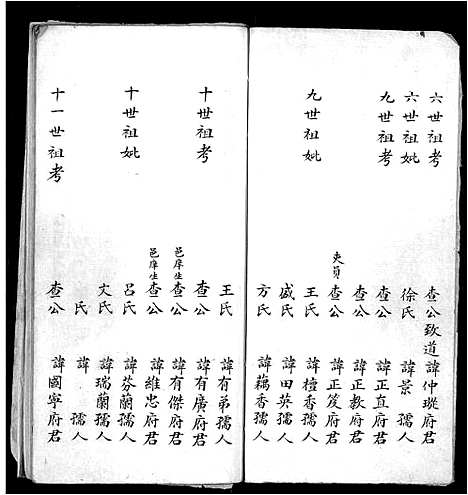 六世祖考 查公致道諱仲璇府君
六世祖妣 徐氏 諱景 孺人
九世祖考 查公 諱正直府君
查公 諱正教府君
吏員 查公 諱正笈府君
九世祖妣 王氏 諱檀香孺人
盛氏 諱田英孺人
方氏 諱藕香孺人
王氏 諱有弟孺人
十世祖考 查公 諱有廣府君
邑庠生 查公 諱有傑府君
邑庠生 查公 諱維忠府君
十世祖妣 呂氏 諱芬蘭孺人
文氏 諱瑞蘭孺人
氏 諱 孺人
十一世祖考 查公 諱國寧府君